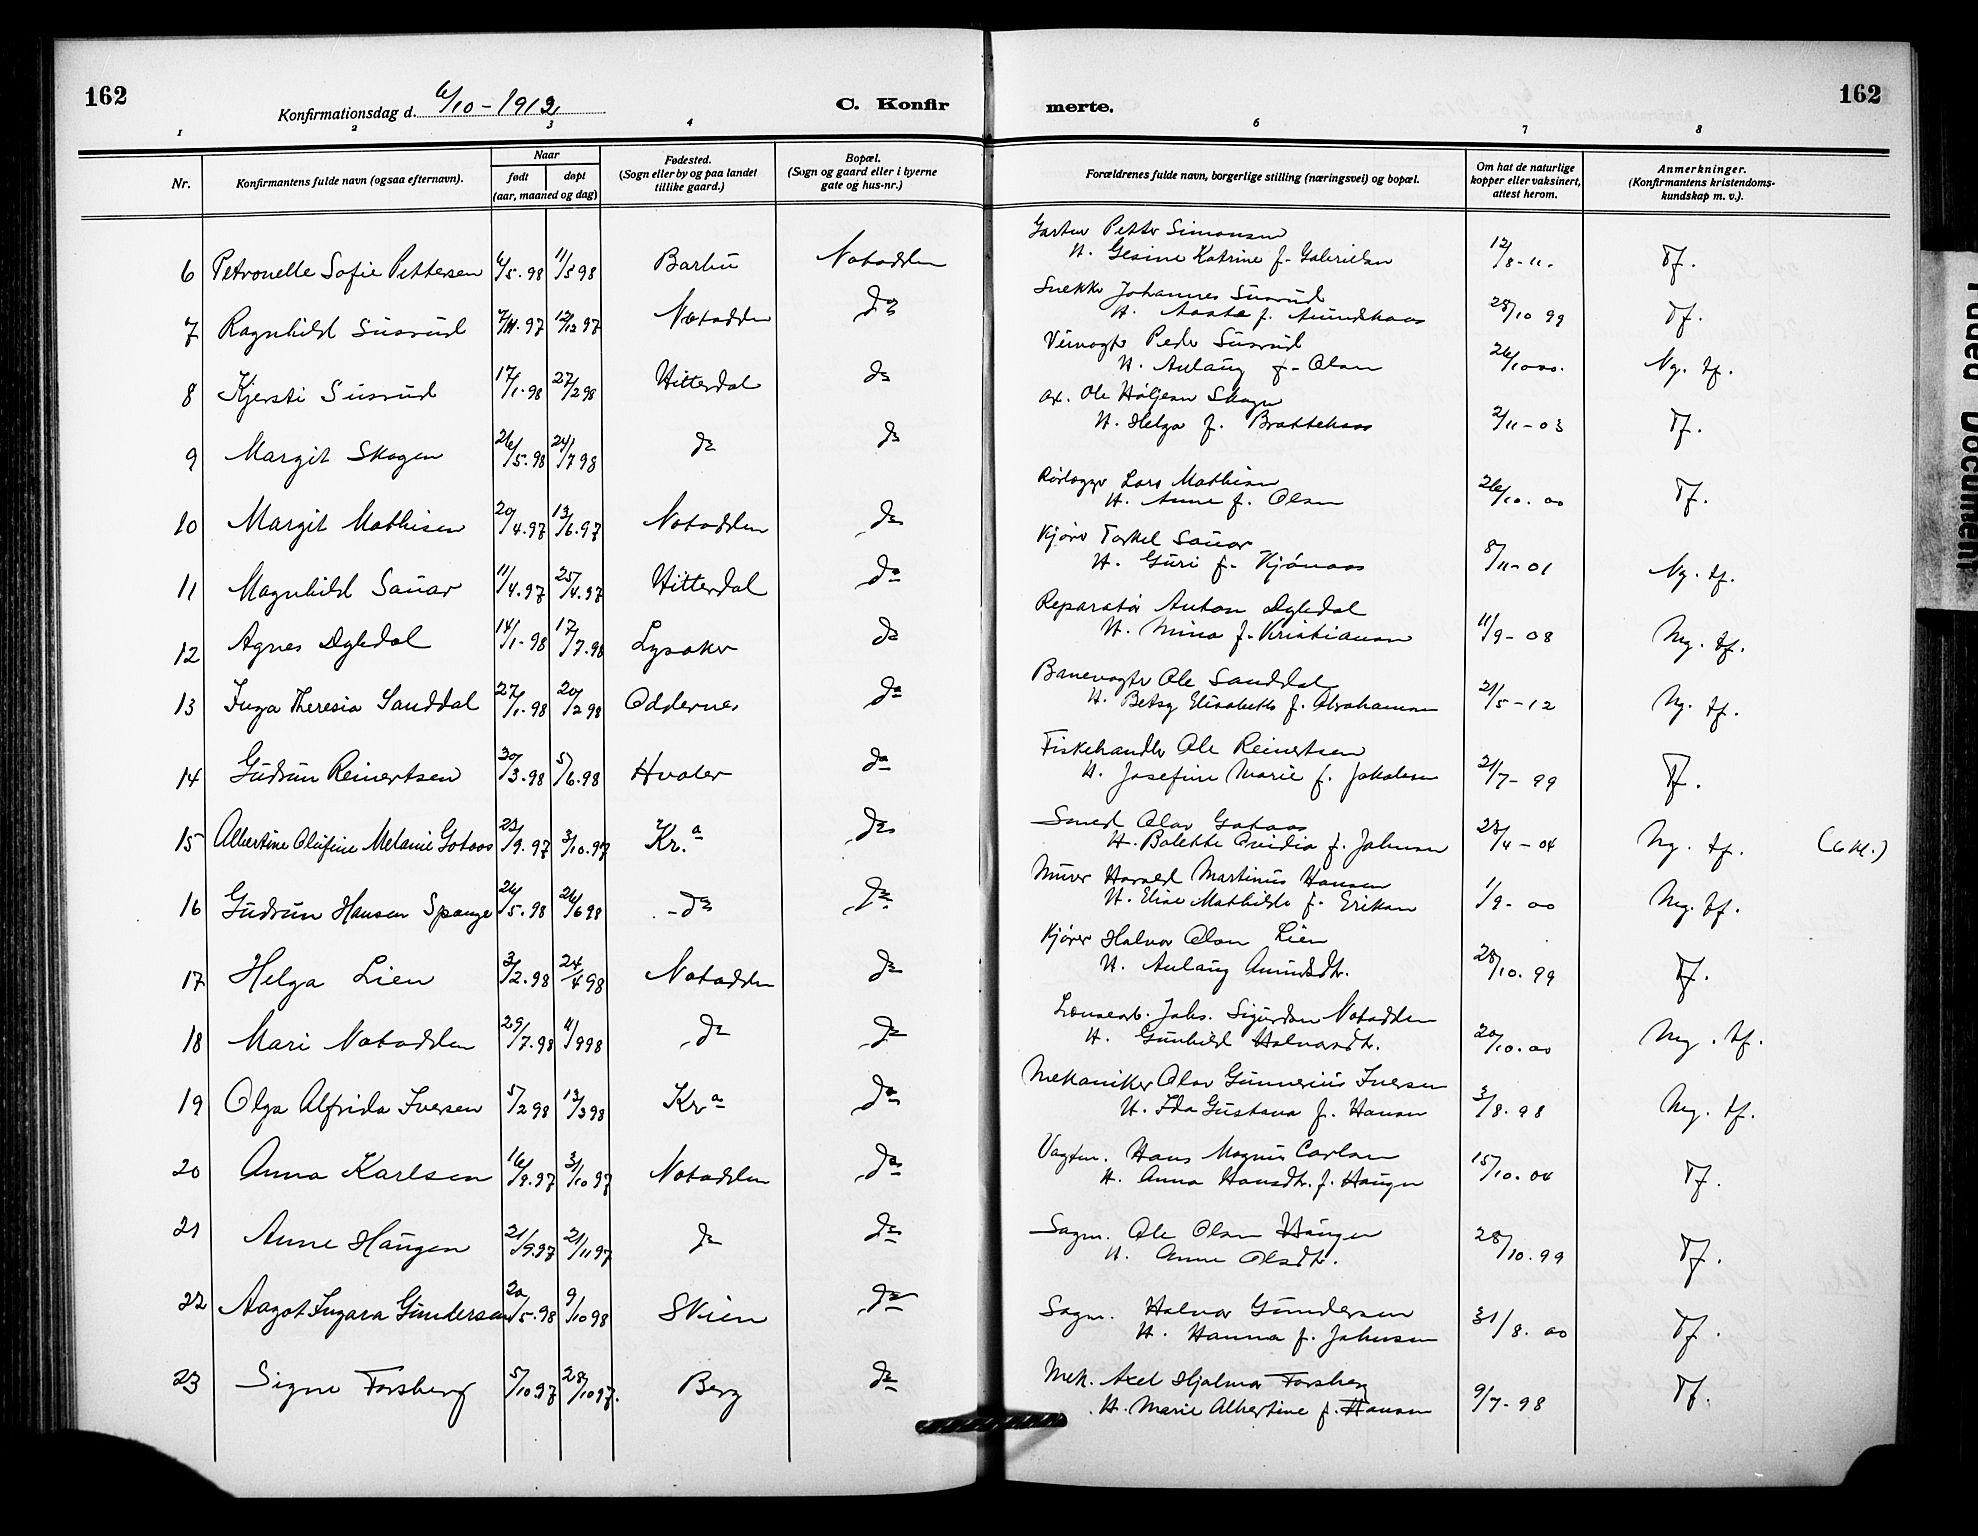 162
Konfirmationsdag d. 6/10 - 1912
C. Konfir
merte.
162
1 2 3 4 6 7 8
Nr.
Konfirmantens fulde navn (ogsaa efternavn).
Naar
født
døpt
(aar, maaned og dag)
Fødested.
(Sogn eller by og paa landet
tillike gaard.)
Bopæl.
(Sogn og gaard eller i byerne
gate og hus-nr.)
Forældrenes fulde navn, borgerlige stilling (næringsvei) og bopæl.
Om hat de naturlige
kopper eller vaksinert,
attest herom.
Anmerkninger.
(Konfirmantens kristendoms-
kundskap m. v.).
6 Petronelle Sofie Pettersen 6/5.98 11/5 98 Barbu Notodden Gartner Petter Simonsen
H. Gesine Katrine f. Gabrielsen 12/8-11. Tf.
7 Ragnhild Susrud 7/11.97 12/12 97 Notodden do Snekker Johannes Susrud
H. Aaste f. Amundhaas 28/10 99 Tf.
8 Kjersti Susrud 17/1.98 27/2 98 Hitterdal do Veivogter Peder Susrud
H. Aslaug f. Olsen 26/10 00. Ng. tf.
9 Margit Skogen 26/5.98 24/7 98 do do Ole Høljesen Skogen
H. Helga f. Brattekaas 2/11-03 Tf.
10 Margit Mathisen 20/4.97 13/6.97 Notodden do Rørlægger Lars Mathisen
H. Anne f. Olsen 26/10.00 Tf.
11 Magnhild Sauar 11/4.97 25/4.97 Hitterdal do Kjører Torkel Sauar
H. Guri f. Kjønaas 8/11-01 Ng. tf.
12 Agnes Dyledal 14/1-98 17/7.98 Lysaker do Reparatør Anton Dyledal
H. Mina f. Kristiansen 11/9-08 Mg. tf.
13 Inga Theresia Sanddal 27/1.98 20/2 98 Oddernes do Banevogter Ole Sanddal
H. Betsy Elisabeth f. Abrahamsen 21/5-12 Ng. tf.
14 Gudrun Reinertsen 30/3.98 5/6.98 Hvaler do Fiskehandler Ole Reinertsen
H. Josefine Marie f. Jakobsen 21/7-99 Tf.
15 Albertine Olufine Melanie Gotaas 23/9.97 3/10.97 Kr.a do Smed Olav Gotaas
H. Bolette Ovidia f. Johnsen 28/4-04 Mg. tf. (6 kl.)
16 Gudrun Hansen Spange 26/5.98 26/6 98 - do do Murer Harald Martinus Hansen
H. Elise Mathilde f. Eriksen 1/9-00 Mg. tf.
17 Helga Lien 3/2.98 24/4 98 Notodden do Kjører Halvor Olsen Lien
H. Aslaug Amundsdtr. 28/10.99 Tf.
18 Mari Notodden 29/7.98 4/9 98 do do Johs. Sigurdsen Notodden
H. Gunhild Halvorsdtr. 20/10.00 Mg. tf.
19 Olga Alfrida Iversen 5/2 98 13/3 98 Kra do Mekaniker Olav Gunnerius Iversen
H. Ida Gustava f. Hansen 3/8.98 Mg. tf.
20 Anna Karlsen 16/9.97 3/10 97 Notodden do Vagtm. Hans Magnus Carlsen
H. Anna Hansdtr. f. Haugen 15/10.04 Tf.
21 Anne Haugen 21/9.97 21/11 97 do do Sagm. Ole Olsen Haugen
H. Anne Olsdtr. 28/10.99 Tf.
22 Aagot Ingara Gundersen 20/5.98 9/10 98 Skien do Sagm. Halvor Gundersen
H. Hanna f. Johnsen 31/8.00 Tf.
23 Signe Forsberg 5/10 97 28/10 97. Berg do Mek. Axel Hjalmar Forsberg
H. Marie Albertine f. Hansen 9/7-98 Tf.
Document